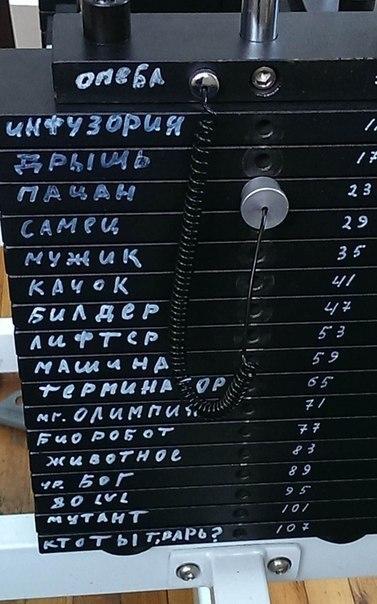 ОПЕБЛ
ИНФУЗОРИЯ
ДРЫЩЬ 17
ПАЦАН 23
САМЕЦ 29
МУЖИК 35
КАЧОК 41
БИЛДЕР 47
ЛИФТЕР 53
МАШИНА 59
ТЕРМИНАТОР 65
МГ. ОЛИМПИЯ 71
БИОРОБОТ 77
ЖИВОТНОЕ 83
УР. БОГ 89
80 LVL 95
МУТАНТ 101
КТО ТЫ Т,ВАРЬ? 107